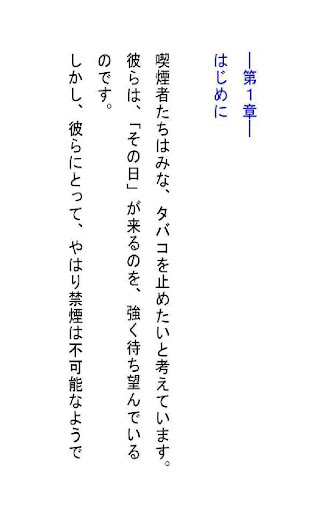 ―第１章―
はじめに
喫煙者たちはみな、タバコを止めたいと考えています。
彼らは、「その日」が来るのを、強く待ち望んでいる
のです。
しかし、彼らにとって、やはり禁煙は不可能なようで